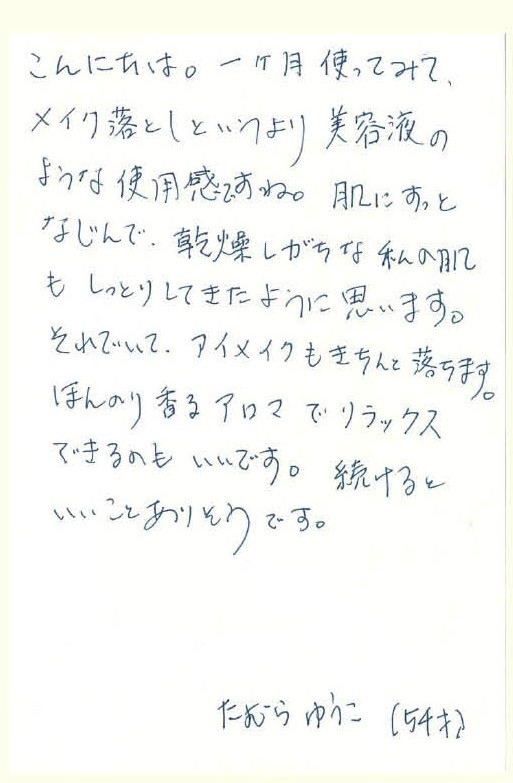 こんにちは。一ヶ月使ってみて、
メイク落としというより美容液の
ような使用感ですね。肌にすっと
なじんで、乾燥しがちな私の肌
もしっとりしてきたように思います。
それでいて、アイメイクもきちんと落ちます。
ほんのり香るアロマでリラックス
できるのもいいです。続けると
いいことありそうです。
たむらゆうこ(54才)